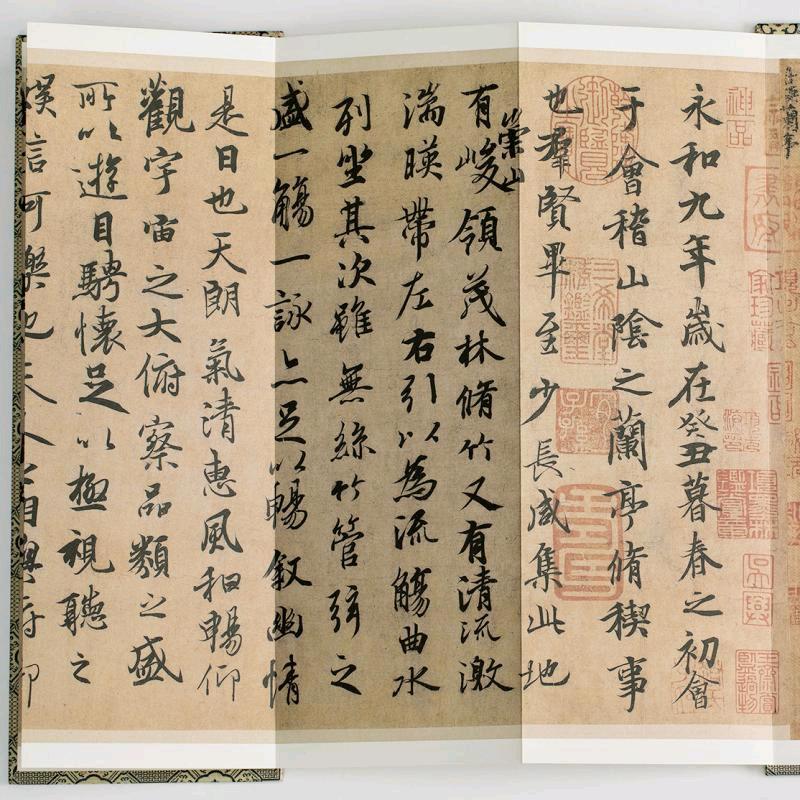 神品
永和九年歲在癸丑暮春之初會
于會稽山陰之蘭亭脩稧事
也羣賢畢至少長咸集此地
崇山
有峻領茂林脩竹又有清流激
湍暎帶左右引以為流觴曲水
列坐其次雖無絲竹管弦之
盛一觴一詠亦足以暢敘幽情
是日也天朗氣清惠風和暢仰
觀宇宙之大俯察品類之盛
所以遊目騁懷足以極視聽之
娛信可樂也夫人之相與俯仰
三希堂精鑑璽
宜子孫